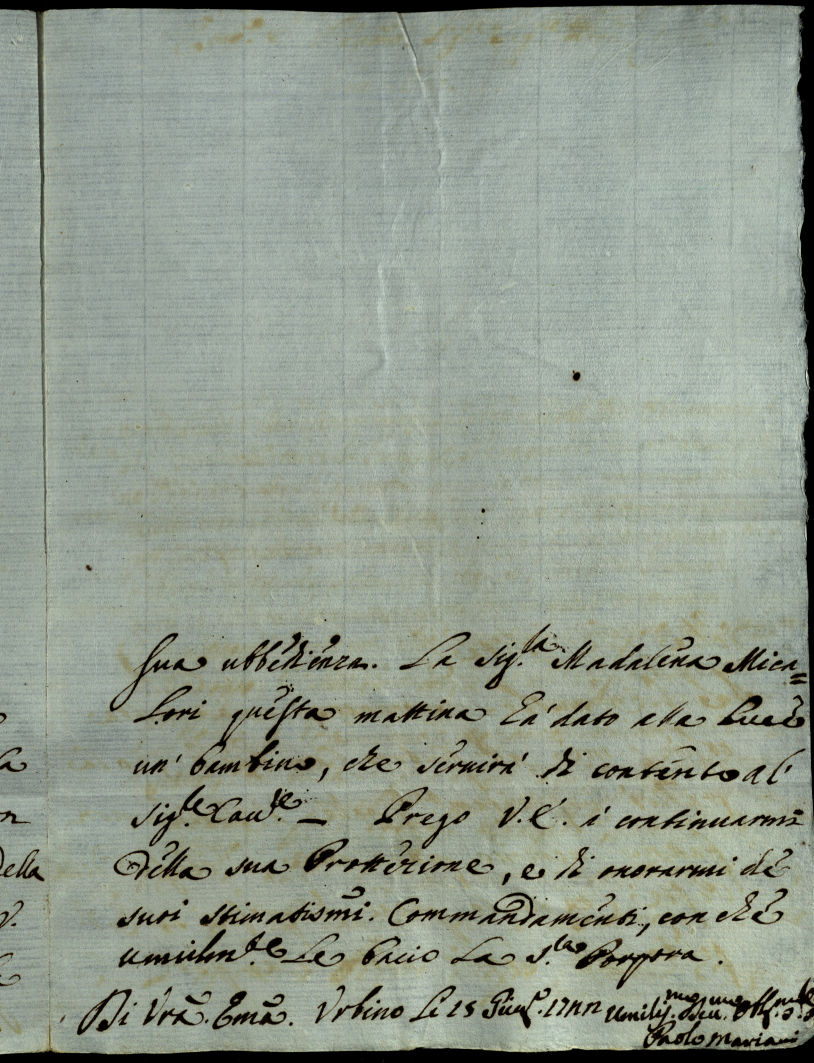 sua ubbedienza. La Sig.ra Madalena Mica=
lori questa mattina hà dato alla Luce
un' bambino, che seruirà di contento al'
Sig.re Cau.re — Prego V.E. à continuarmi
della sua Prottezione, e di onorarmi de
suoi stimatismi. Commandamenti, con che
umilm.te Le bacio La S.ra Porpora.
Di Vrã. Emã. Urbino Li 15
Paolo Mariani
della
V.